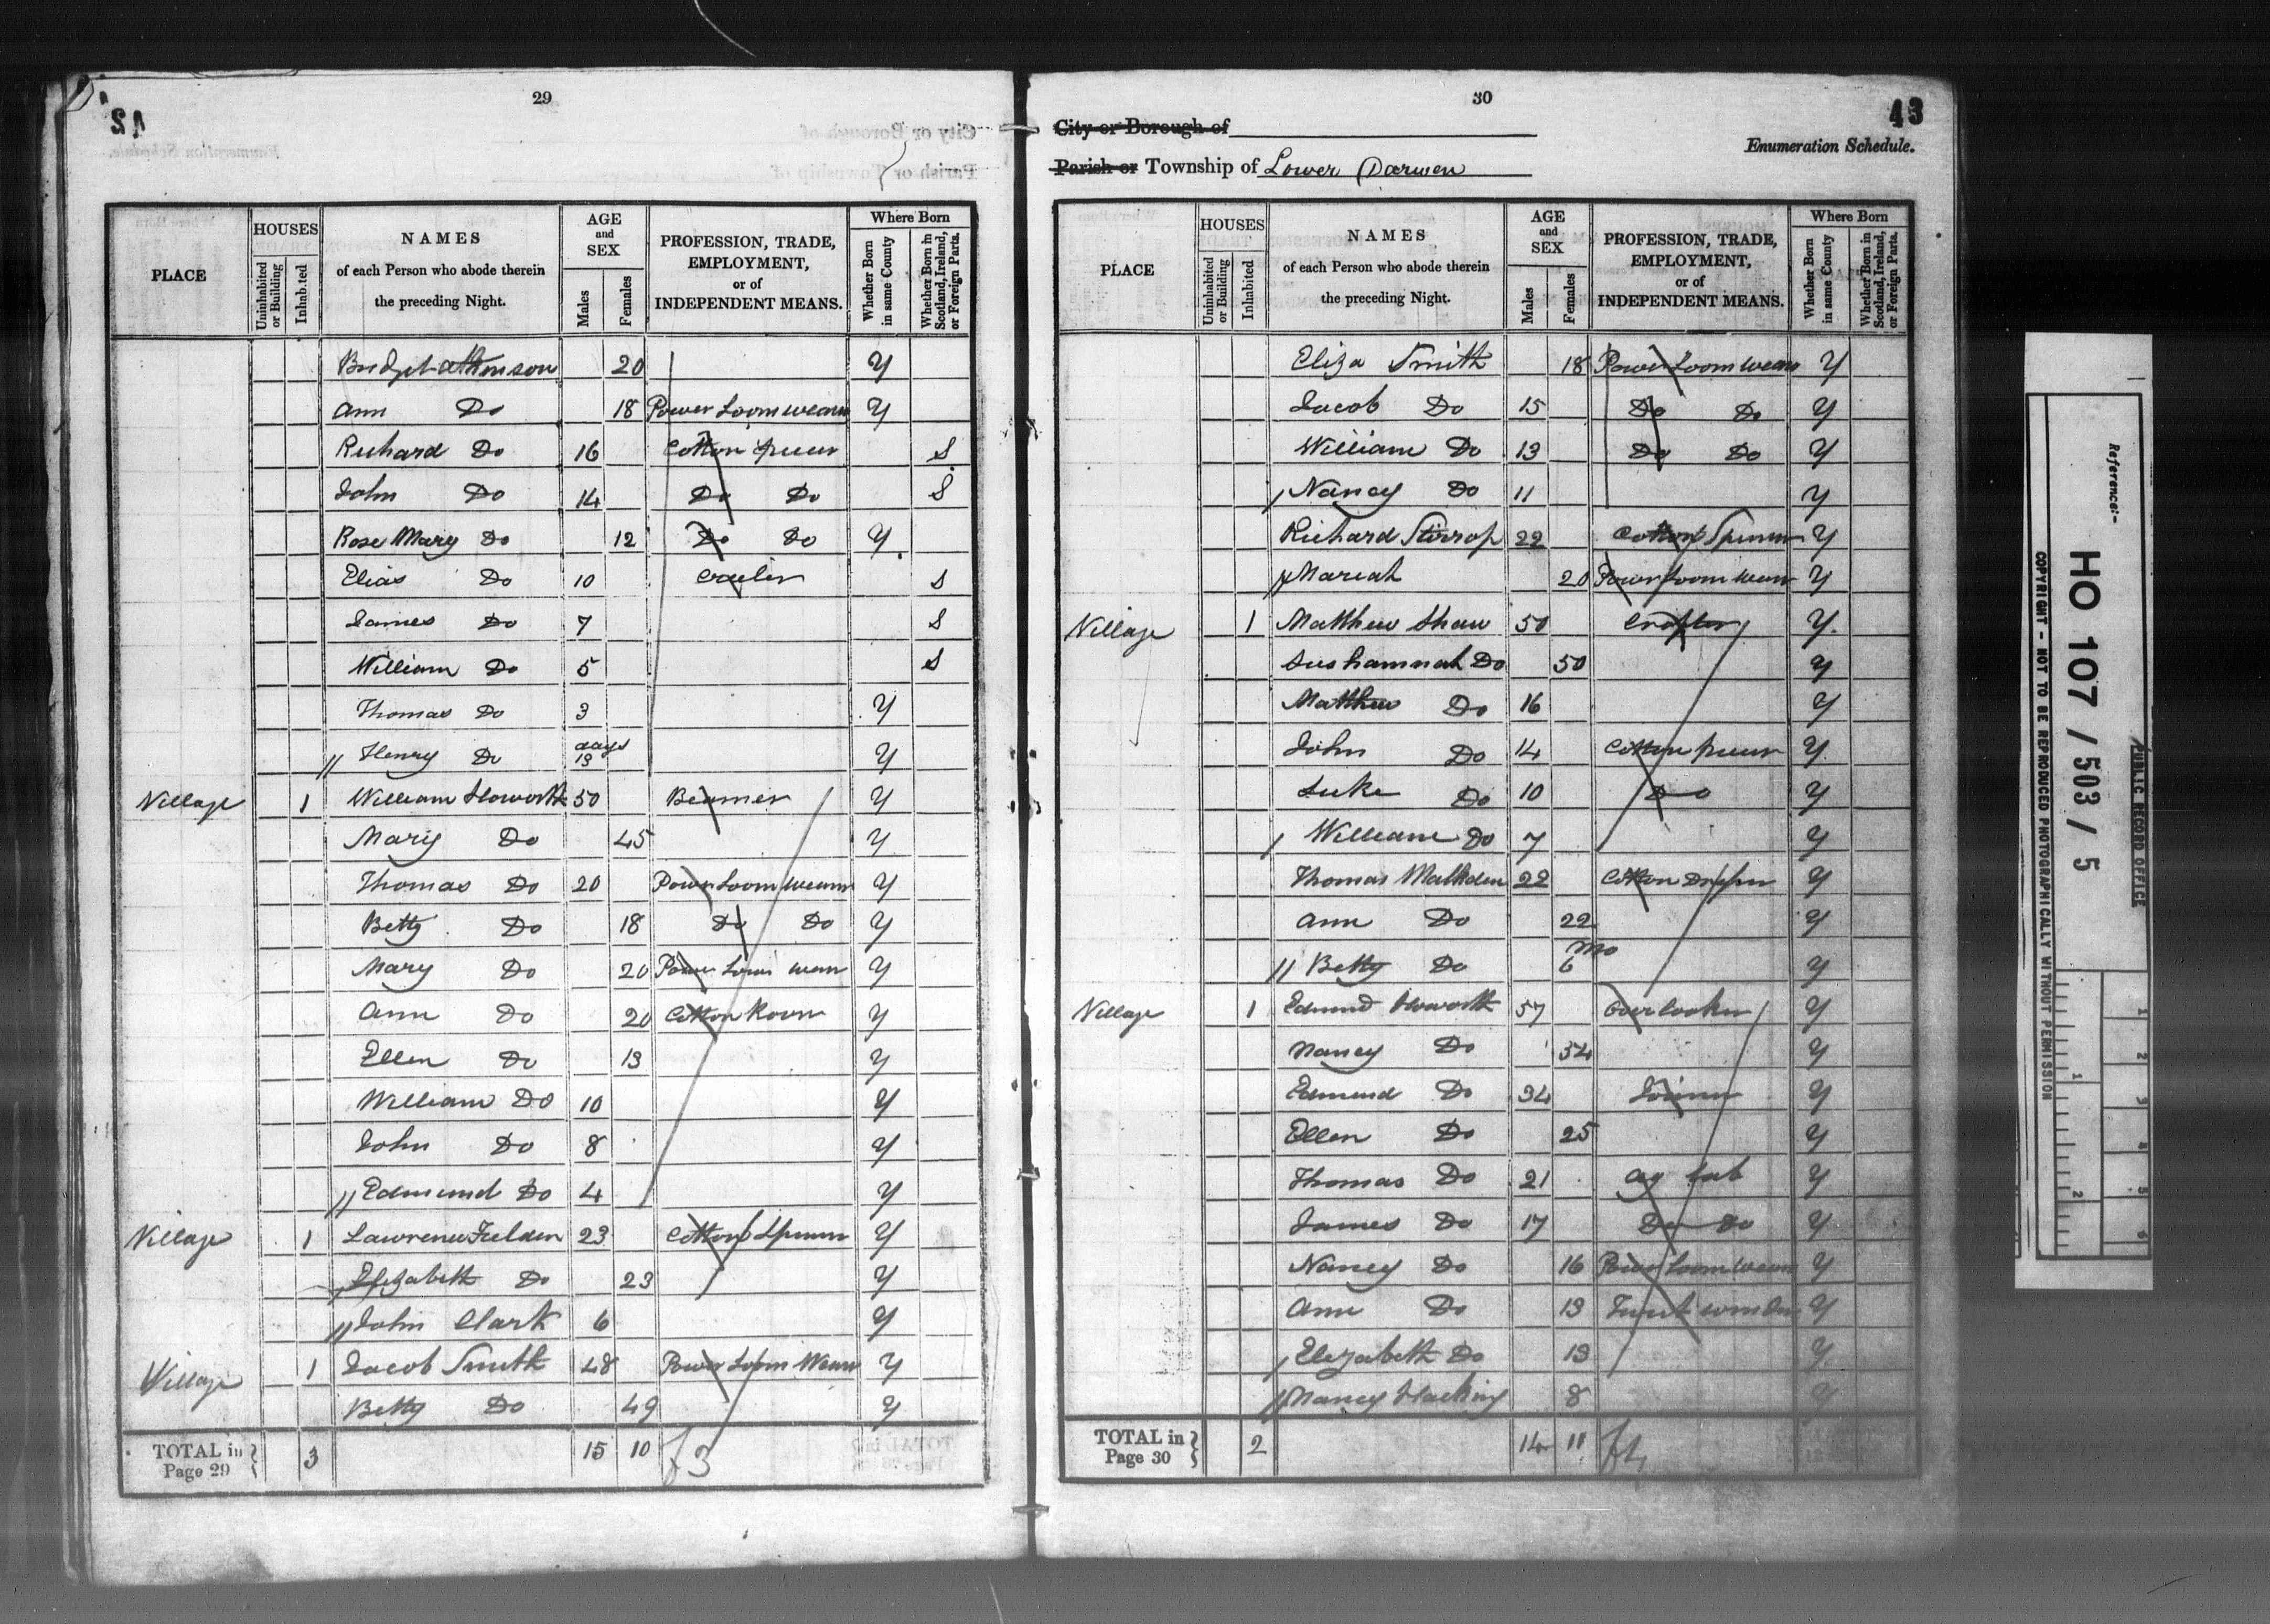 29
PLACE HOUSES Uninhabited or Building Inhabited NAMES of each Person who abode therein the preceding Night. AGE and SEX Males Females PROFESSION, TRADE, EMPLOYMENT, or of INDEPENDENT MEANS. Where Born Whether Born in same County Whether Born in Scotland, Ireland, or Foreign Parts.
Bridget Atkinson 20 Y
Ann Do 18 Power Loom Weaver Y
Richard Do 16 Cotton Piecer S
John Do 14 Do Do S
Rose Mary Do 12 Do Do Y
Elias Do 10 S
James Do 7 S
William Do 5 S
Thomas Do 3 Y
Henry Do days 13 Y
Village 1 William Howorth 50 Beamer Y
Mary Do 45 Y
Thomas Do 20 Power Loom Weaver Y
Betty Do 18 Do Do Y
Mary Do 20 Power Loom Weaver Y
Ann Do 20 Cotton Y
Ellen Do 13 Y
William Do 10 Y
John Do 8 Y
Edmund Do 4 Y
Village 1 Lawrence Fielden 23 Cotton Spinner Y
Elizabeth Do 23 Y
John Clark 6 Y
Village 1 Jacob Smith 48 Power Loom Weaver Y
Betty Do 49 Y
TOTAL in Page 29 3 15 10 f3
30
43
City or Borough of
Enumeration Schedule.
Parish or Township of Lower Darwen
PLACE HOUSES Uninhabited or Building Inhabited NAMES of each Person who abode therein the preceding Night. AGE and SEX Males Females PROFESSION, TRADE, EMPLOYMENT, or of INDEPENDENT MEANS. Where Born Whether Born in same County Whether Born in Scotland, Ireland, or Foreign Parts.
Eliza Smith 18 Power Loom Weaver Y
Jacob Do 15 Do Do Y
William Do 13 Do Do Y
Nancy Do 11 Y
Richard Stirrop 22 Cotton Spinner Y
Mariah 20 Power Loom Weaver Y
Village 1 Matthew Shaw 50 Crofter Y
Sushannah Do 50 Y
Matthew Do 16 Y
John Do 14 Cotton Piecer Y
Luke Do 10 Do Y
William Do 7 Y
Thomas Malkden 22 Cotton Y
Ann Do 22 Y
Betty Do Mo 6 Y
Village 1 Edmund Howorth 57 Overlooker Y
Nancy Do 54 Y
Edmund Do 34 Joiner Y
Ellen Do 25 Y
Thomas Do 21 Ag Lab Y
James Do 17 Do Do Y
Nancy Do 16 Power Loom Weaver Y
Ann Do 13 Twist Winder Y
Elezabeth Do 13 Y
Nancy Hacking 8 Y
TOTAL in Page 30 2 14 11 f4
Reference:-
HO 107 / 503 / 5
PUBLIC RECORD OFFICE
COPYRIGHT - NOT TO BE REPRODUCED PHOTOGRAPHICALLY WITHOUT PERMISSION